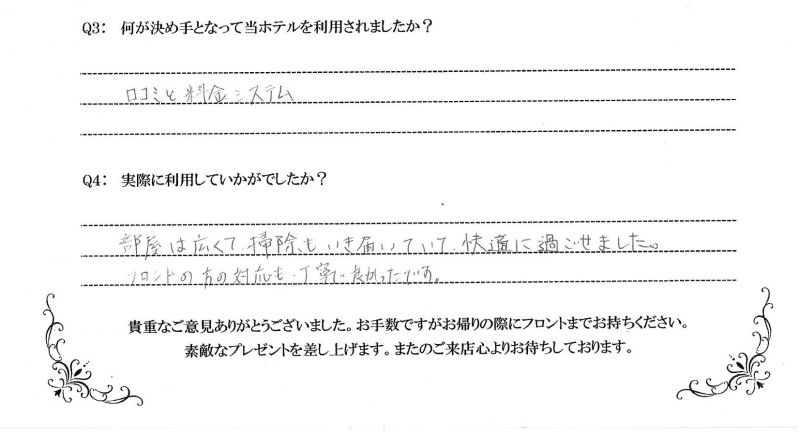 Q3: 何が決め手となって当ホテルを利用されましたか？
口コミと料金システム
Q4: 実際に利用していかがでしたか？
部屋は広くて、掃除もいき届いていて、快適に過ごせました。
フロントの方の対応も、丁寧で良かったです。
貴重なご意見ありがとうございました。お手数ですがお帰りの際にフロントまでお持ちください。
素敵なプレゼントを差し上げます。またのご来店心よりお待ちしております。